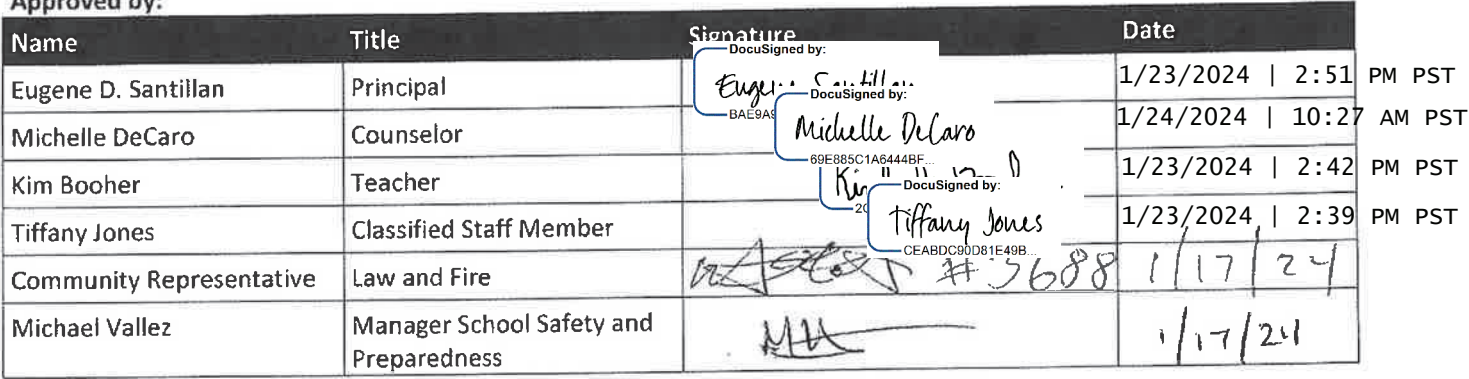 Approved by:
Name Title Signature Date
Eugene D. Santillan Principal DocuSigned by: Eugene Santillan BAE9A9 1/23/2024 | 2:51 PM PST
Michelle DeCaro Counselor DocuSigned by: Michelle DeCaro 69E885C1A6444BF... 1/24/2024 | 10:27 AM PST
Kim Booher Teacher 20 1/23/2024 | 2:42 PM PST
Tiffany Jones Classified Staff Member DocuSigned by: Tiffany Jones CEABDC90D81E49B... 1/23/2024 | 2:39 PM PST
Community Representative Law and Fire #3688 1/17/24
Michael Vallez Manager School Safety and
Preparedness 1/17/24